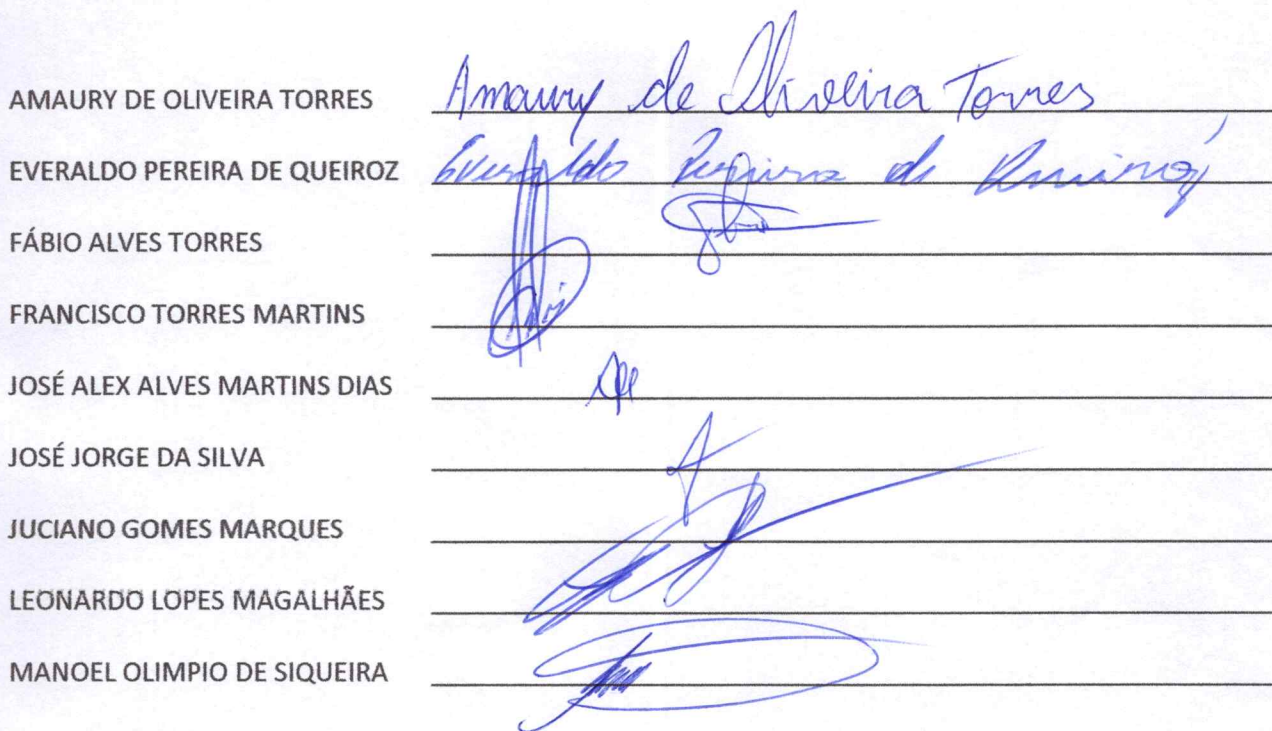 AMAURY DE OLIVEIRA TORRES Amaury de Oliveira Torres
EVERALDO PEREIRA DE QUEIROZ Everaldo Pereira de Queiroz
FÁBIO ALVES TORRES
FRANCISCO TORRES MARTINS
JOSÉ ALEX ALVES MARTINS DIAS
JOSÉ JORGE DA SILVA
JUCIANO GOMES MARQUES
LEONARDO LOPES MAGALHÃES
MANOEL OLIMPIO DE SIQUEIRA